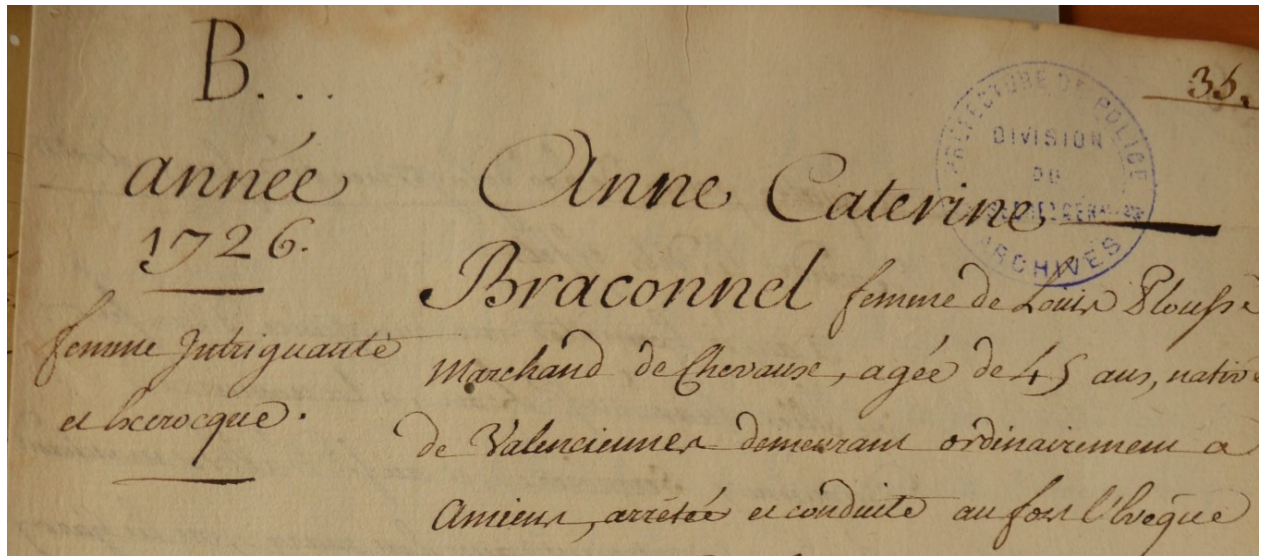 B...
35.
PRÉFECTURE DE POLICE
DIVISION
DU
ARCHIVES
année
1726.
femme Intriguante
et Escrocque.
Anne Caterine
Braconnel femme de Louis Plousse
Marchand de Chevaux, agée de 45 ans, native
de Valenciennes demeurant ordinairement a
Amiens, arretée et conduite au fort l'Eveque